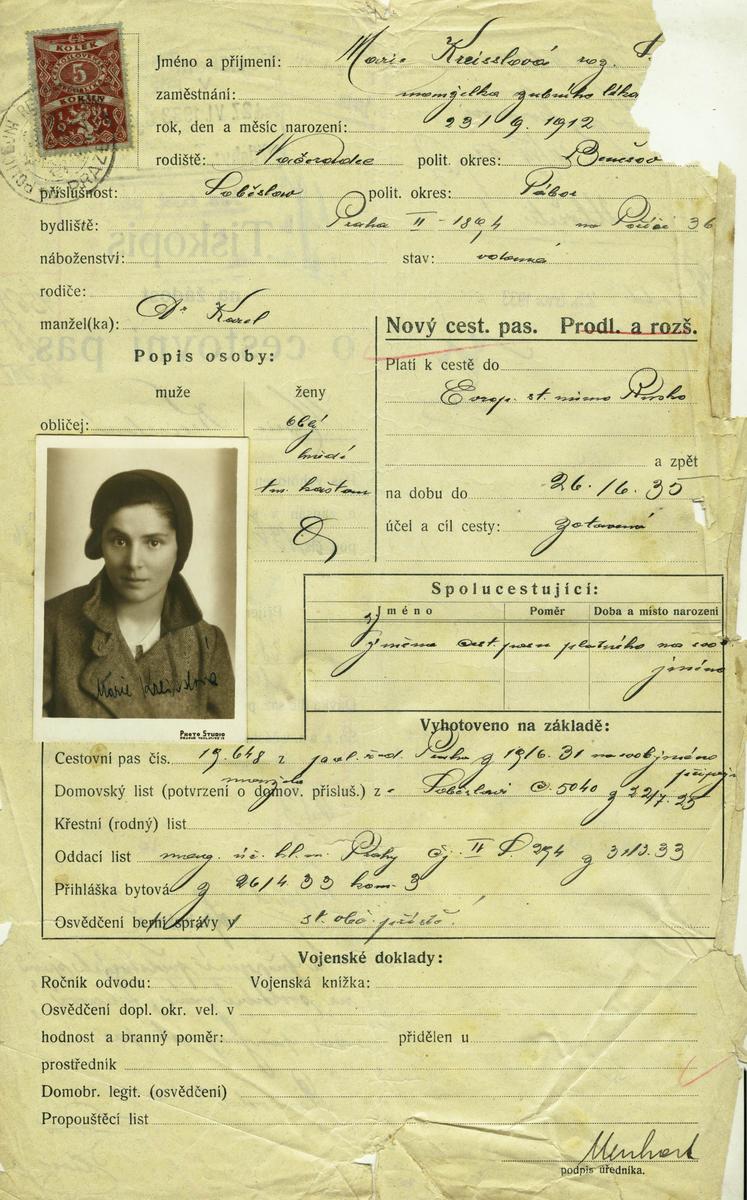 KOLEK
5
KORUN
Jméno a příjmení: Marie Kreisslová roz.
zaměstnání: manželka zubního léka
rok, den a měsíc narození: 23/9. 1912
rodiště: Načeradec polit. okres: Benešov
příslušnost: Soběslav polit. okres: Tábor
bydliště: Praha II - 1894 na Poříčí 36
náboženství: stav: vdaná
rodiče:
manžel(ka): Dr Karel
Nový cest. pas. Prodl. a rozš.
Popis osoby:
muže ženy
obličej: oblý
hnědé
tm. kaštan
Platí k cestě do
Evrop. st. mimo Rusko
a zpět
na dobu do 26./6. 35
účel a cíl cesty: zotavená
Spolucestující:
Jméno Poměr Doba a místo narození
výměna cest. pasu platného na
jméno
Marie Kreisslová
PHOTO STUDIO
Vyhotoveno na základě:
Cestovní pas čís. 19.648 z pol. řed. Praha z 19/6. 31 na svob. jméno
manžela
Domovský list (potvrzení o domov. přísluš.) z Soběslavi č. 5040 z 22/7. 25
Křestní (rodný) list
Oddací list mag. úř. hl. m. Prahy čj II 294 z 31/3. 33
Přihláška bytová z 26/4 33 kom. 3
Osvědčení berní správy v st. obč. přísl.
Vojenské doklady:
Ročník odvodu: Vojenská knížka:
Osvědčení dopl. okr. vel. v
hodnost a branný poměr: přidělen u
prostředník
Domobr. legit. (osvědčení)
Propouštěcí list
Menhart
podpis úředníka.